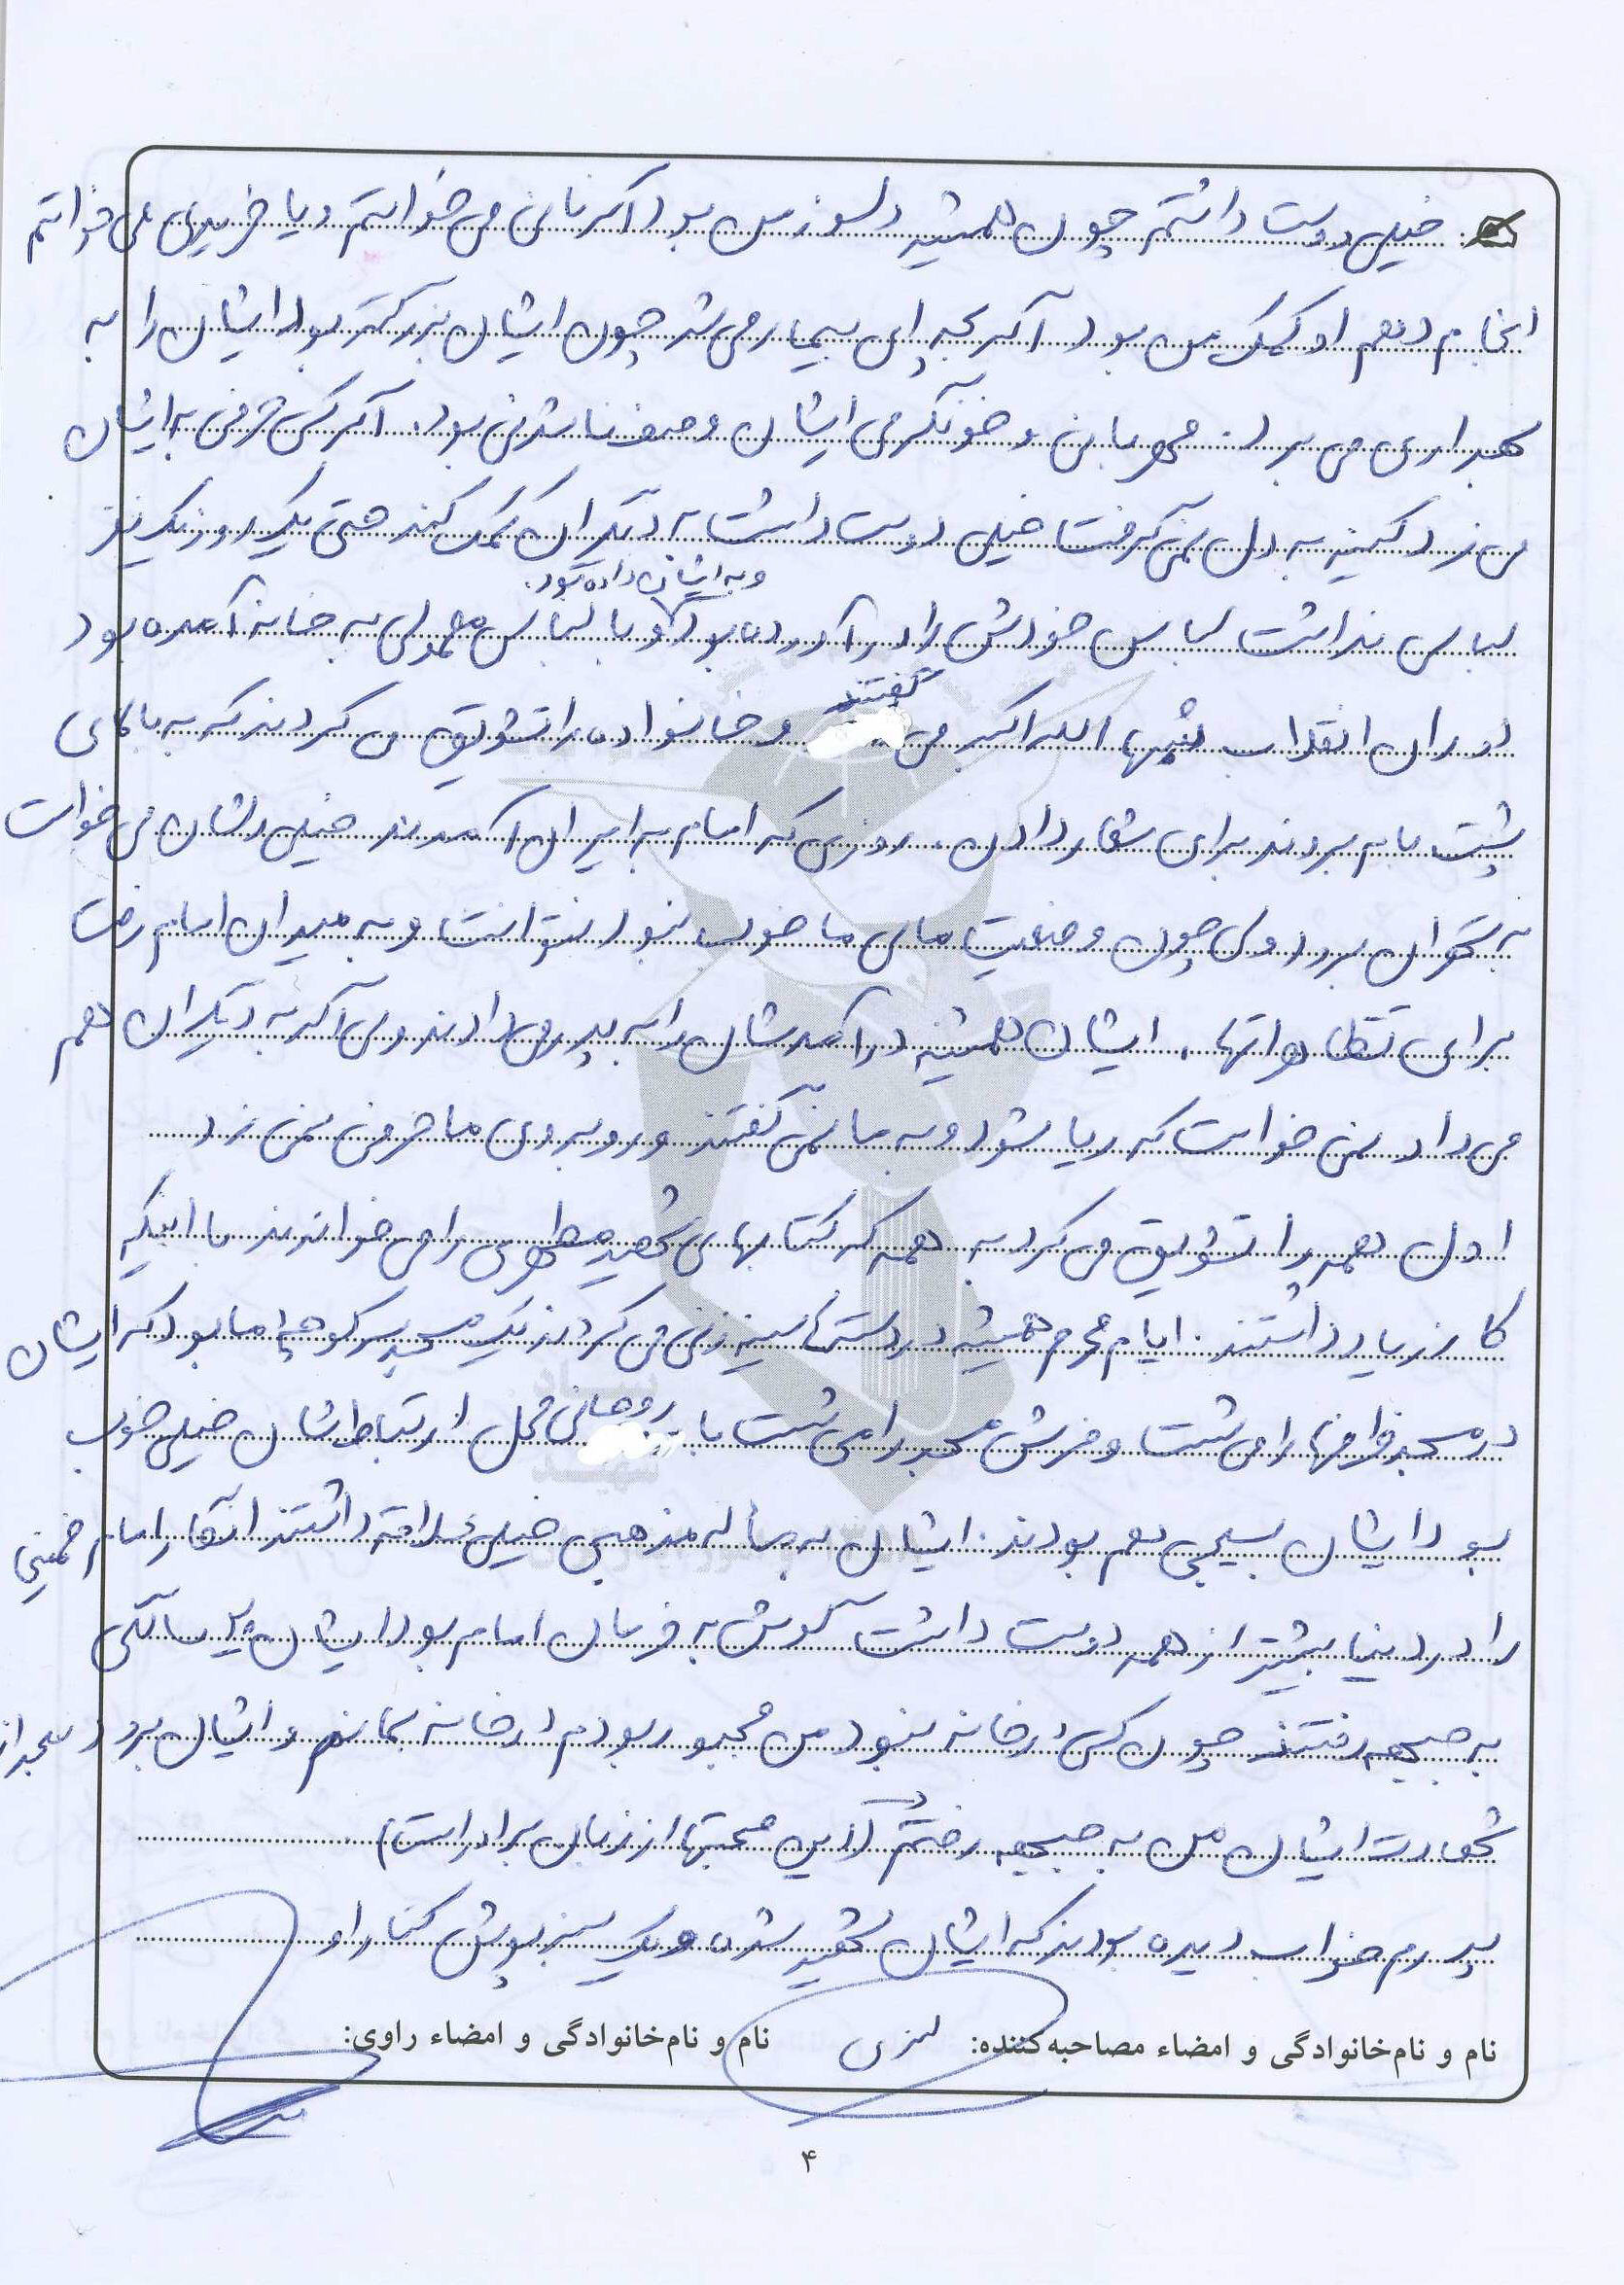 خیلی دوست داشتم چون همیشه دلسوز من بود اگر نانی می خواستم و یا خریدی می خواستم
انجام دهم او کمک من بود اگر بچه ای بیمار می شد چون ایشان بزرگتر بود ایشان را به
بهداری می برد. مهربانی و خونگرمی ایشان وصف ناشدنی بود. اگر کسی حرفی به ایشان
می زد کینه به دل نمی گرفت خیلی دوست داشت به دیگران کمک کند حتی یک روز یک نفر
لباس نداشت لباس خودش را در آورده بود و به ایشان داده بود. و با لباس معمولی به خانه آمده بود
دوران انقلاب شبها الله اکبر می گفتند و خانواده را تشویق می کردند که به بالای
پشت بام بروند برای شعار دادن. روزی که امام به ایران آمدند خیلی دلشان می خواست
به تهران برود ولی چون وضعیت مالی ما خوب نبود نتوانست و به میدان امام رفت
برای تظاهراتها. ایشان همیشه درآمدشان را به پدر می دادند ولی اگر به دیگران هم
می داد نمی خواست که ریا شود و به ما نمی گفتند و روبروی ما حرفی نمی زد
اول همه را تشویق می کرد به همه که کتابهای شهید مطهری را می خواندند با اینکه
کار زیاد داشتند. ایام محرم همیشه در دسته سینه زنی می کردند یک مسجد سر کوچه ما بود که ایشان
در مسجد ظرفها را می شست و فرش مسجد را می شست با روحانی محل ارتباطشان خیلی خوب
بود ایشان بسیجی هم بودند. ایشان به مسأله مذهبی خیلی علاقه داشتند آقا امام خمینی
را در دنیا بیشتر از همه دوست داشت گوش به فرمان امام بود ایشان سالگی
به جبهه رفتند چون کسی در خانه نبود من مجبور بودم در خانه بمانم و ایشان برود بعد از
شهادت ایشان من به جبهه رفتم (این صحبتها از زبان برادر است)
پدرم خواب دیده بودند که ایشان شهید شده و یک سبز پوش کنار او
نام و نام‌خانوادگی و امضاء مصاحبه‌کننده:
نام و نام‌خانوادگی و امضاء راوی:
۴